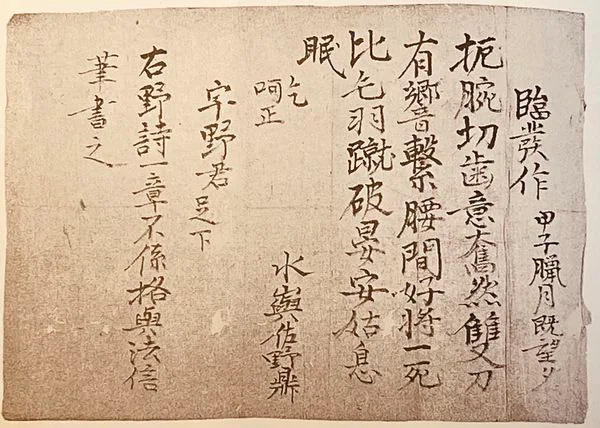 臨発作 甲子臘月既望夕
扼腕切歯意奮然雙刀
有響繋腰間好将一死
比乞羽蹴破晏安姑息
眠
乞
呵正
水輿佐野鼎
字野君足下
右野詩一章不係格與法信
筆書之